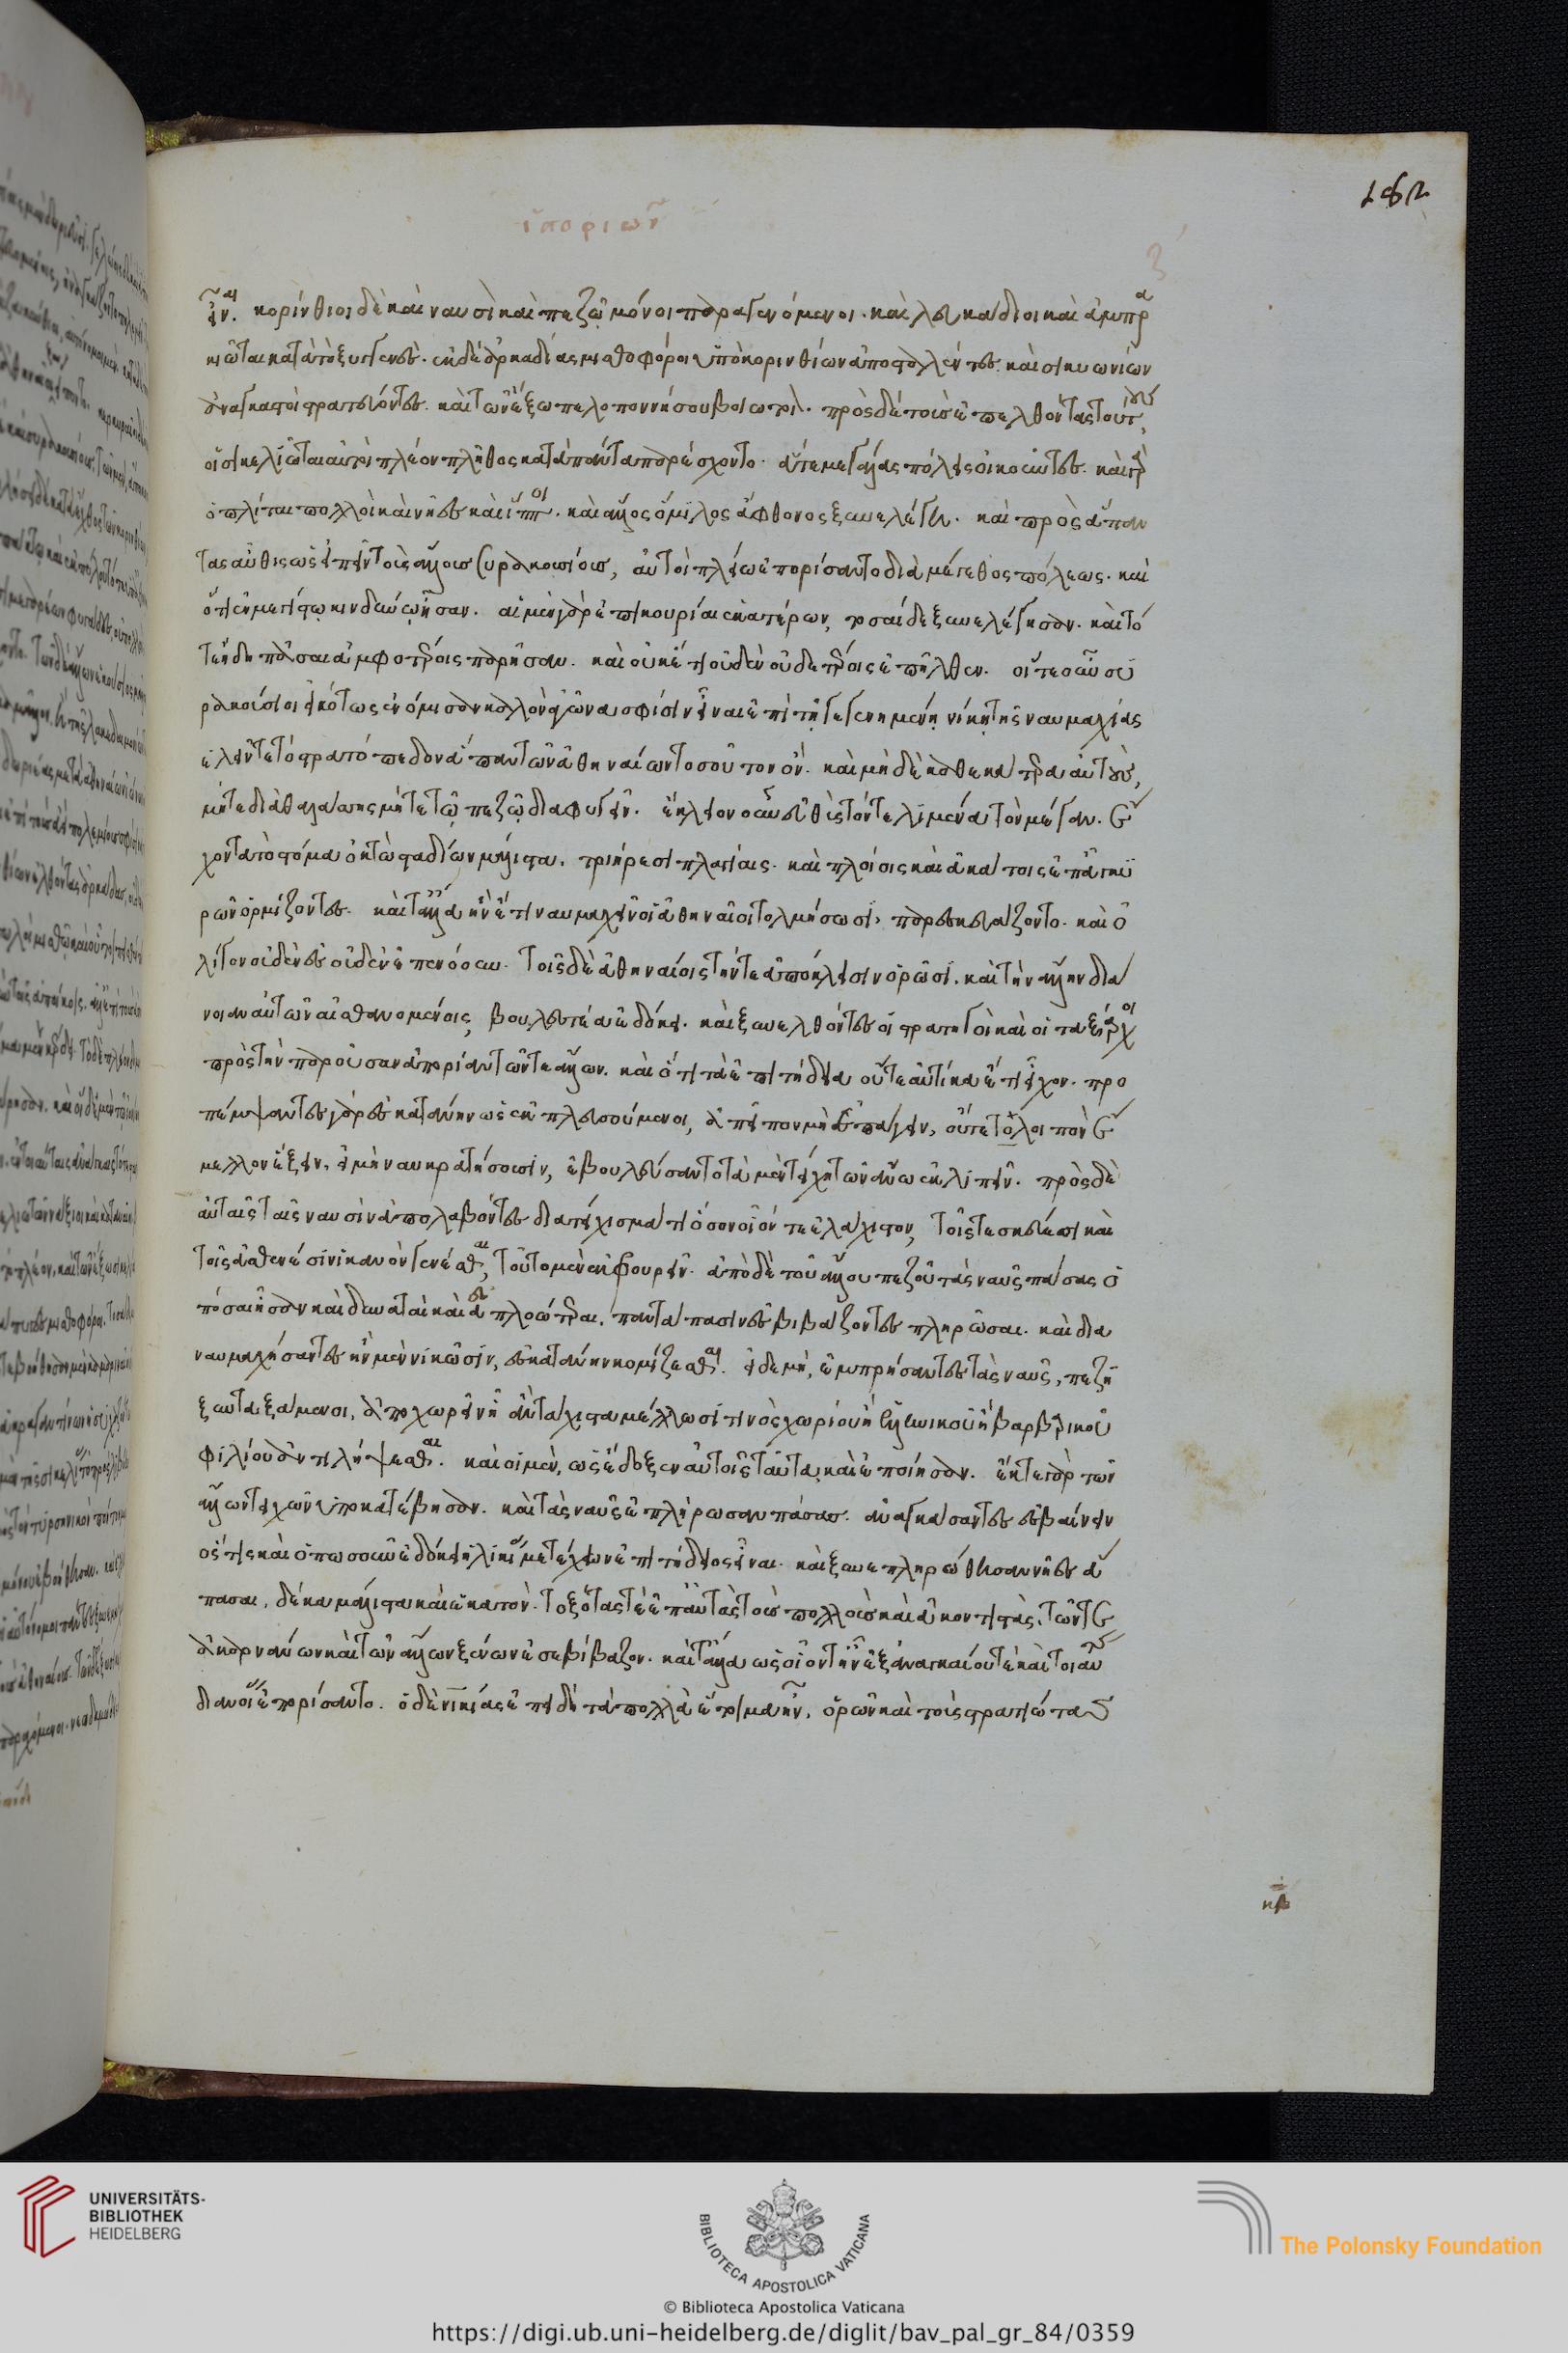 ἱστοριῶν
ζ
182
εἶναι. κορίνθιοι δὲ καὶ ναυσὶ καὶ πεζῷ μόνοι παραγενόμενοι. καὶ λευκάδιοι καὶ ἀμπρα
κιῶται κατὰ τὸ ξυγγενές. ἐκ δὲ ἀρκαδίας μισθοφόροι ὑπὸ κορινθίων ἀποσταλέντες. καὶ σικυωνίων
ἀναγκαστοὶ στρατεύοντες. καὶ τῶν ἔξω πελοποννήσου βοιωτοί. πρὸς δὲ τοὺς ἐπελθόντας τούτους,
οἱ σικελιῶται αὐτοὶ πλέον πλῆθος κατὰ πάντα παρέσχοντο. ἅτε μεγάλας πόλεις οἰκοῦντες. καὶ γὰρ
ὁπλίται πολλοὶ καὶ νῆες καὶ ἵπποι. καὶ ἄλλος ὅμιλος ἄφθονος ξυνελέγη. καὶ πρὸς ἅπαν
τας αὖθις ὡς εἰπεῖν τοὺς ἄλλους συρακοσίους, αὐτοὶ πλείω ἐπορίσαντο διὰ μέγεθος πόλεως. καὶ
ὅτι ἐν μεγίστῳ κινδύνῳ ἦσαν. αἱ μὲν γὰρ ἐπικουρίαι ἑκατέρων, τοσαίδε ξυνελέγησαν. καὶ τό
τε ἤδη πᾶσαι ἀμφοτέροις παρῆσαν. καὶ οὐκέτι οὐδὲν οὐδετέροις ἐπῆλθεν. οἵ τε οὖν συ
ρακούσιοι εἰκότως ἐνόμισαν καλὸν ἀγῶνα σφίσιν εἶναι ἐπὶ τῇ γεγενημένῃ νίκῃ τῆς ναυμαχίας
ἑλεῖν τε τὸ στρατόπεδον ἅπαν τῶν ἀθηναίων τοσοῦτον ὄν. καὶ μὴ δὲ καθ ἑκάτερα αὐτοὺς,
μήτε διὰ θαλάσσης μήτε τῷ πεζῷ διαφυγεῖν. ἔκλειον οὖν εὐθὺς τόν τε λιμένα τὸν μέγαν. ἔ
χοντα τὸ στόμα ὀκτὼ σταδίων μάλιστα. τριήρεσι πλαγίαις. καὶ πλοίοις καὶ ἀκάτοις ἐπ' ἀγκυ
ρῶν ὁρμίζοντες. καὶ τἄλλα ἢν ἔτι ναυμαχεῖν οἱ ἀθηναῖοι τολμήσωσι, παρεσκευάζοντο. καὶ ὀ
λίγον οὐδὲν ἐς οὐδὲν ἐπενόουν. τοῖς δὲ ἀθηναίοις τήν τε ἀπόκλεισιν ὁρῶσι. καὶ τὴν ἄλλην διά
νοιαν αὐτῶν αἰσθανομένοις, βουλευτέα ἐδόκει. καὶ ξυνελθόντες οἵ στρατηγοὶ καὶ οἱ ταξίαρχοι
πρὸς τὴν παροῦσαν ἀπορίαν τῶν τε ἄλλων. καὶ ὅτι τὰ ἐπιτήδεια οὔτε αὐτίκα ἔτι εἶχον. προ
πέμψαντες γὰρ ἐς κατάνην ὡς ἐκπλευσούμενοι, ἀπεῖπον μὴ ἐπάγειν, οὔτε τὸ λοιπὸν ἔ
μελλον ἕξειν, εἰ μὴ ναυκρατήσουσιν, ἐβουλεύσαντο τὰ μὲν τείχη τῶν ἄνω ἐκλιπεῖν. πρὸς δὲ
αὐταῖς ταῖς ναυσὶν ἀπολαβόντες διατείχισμά τι ὅσον οἷόν τε ἐλάχιστον, τοῖς τε σκεύεσι καὶ
τοῖς ἀσθενέσιν ἱκανὸν γενέσθαι, τοῦτο μὲν φρουρεῖν. ἀπὸ δὲ τοῦ ἄλλου πεζοῦ τὰς ναῦς πάσας ὁ
πόσαι ἦσαν καὶ δυναταὶ καὶ ἀπλοώτεραι. πάντα πάσιν ἐσβιβάζοντες πληρῶσαι. καὶ δια
ναυμαχήσαντες ἢν μὲν νικῶσιν, ἐς κατάνην κομίζεσθαι. εἰ δὲ μή, ἐμπρήσαντες τὰς ναῦς, πεζῇ
ξυνταξάμενοι, ἀποχωρεῖν ᾗ ἂν τάχιστα μέλλωσί τινος χωρίου ἢ ἑλληνικοῦ ἢ βαρβαρικοῦ
φιλίου ἀντιλήψεσθαι. καὶ οἱ μὲν, ὡς ἔδοξεν αὐτοῖς ταῦτα, καὶ ἐποίησαν. ἔκ τε γὰρ τῶν
ἄνω τειχῶν ὑποκατέβησαν. καὶ τὰς ναῦς ἐπλήρωσαν πάσας. ἀναγκάσαντες ἐσβαίνειν
ὅστις καὶ ὁπωσοῦν ἐδόκει ἡλικίας μετέχων ἐπιτήδειος εἶναι. καὶ ξυνεπληρώθησαν νῆες ἅ
πασαι, δέκα μάλιστα καὶ ἑκατόν. τοξότας τε ἐπ' αὐτὰς τοὺς πολλοὺς καὶ ἀκοντιστὰς, τῶν τε
ἀκαρνάνων καὶ τῶν ἄλλων ξένων ἐσεβίβαζον. καὶ τἄλλα ὡς οἷόν τ' ἦν ἐξ ἀναγκαίου τε καὶ τοιαύ
διανοίας ἐπορίσαντο. ὁ δὲ νικίας ἐπειδὴ τὰ πολλὰ ἕτοιμα ἦν, ὁρῶν καὶ τοὺς στρατιώτας
UNIVERSITÄTS-
BIBLIOTHEK
HEIDELBERG
BIBLIOTECA APOSTOLICA VATICANA
The Polonsky Foundation
© Biblioteca Apostolica Vaticana
https://digi.ub.uni-heidelberg.de/diglit/bav_pal_gr_84/0359